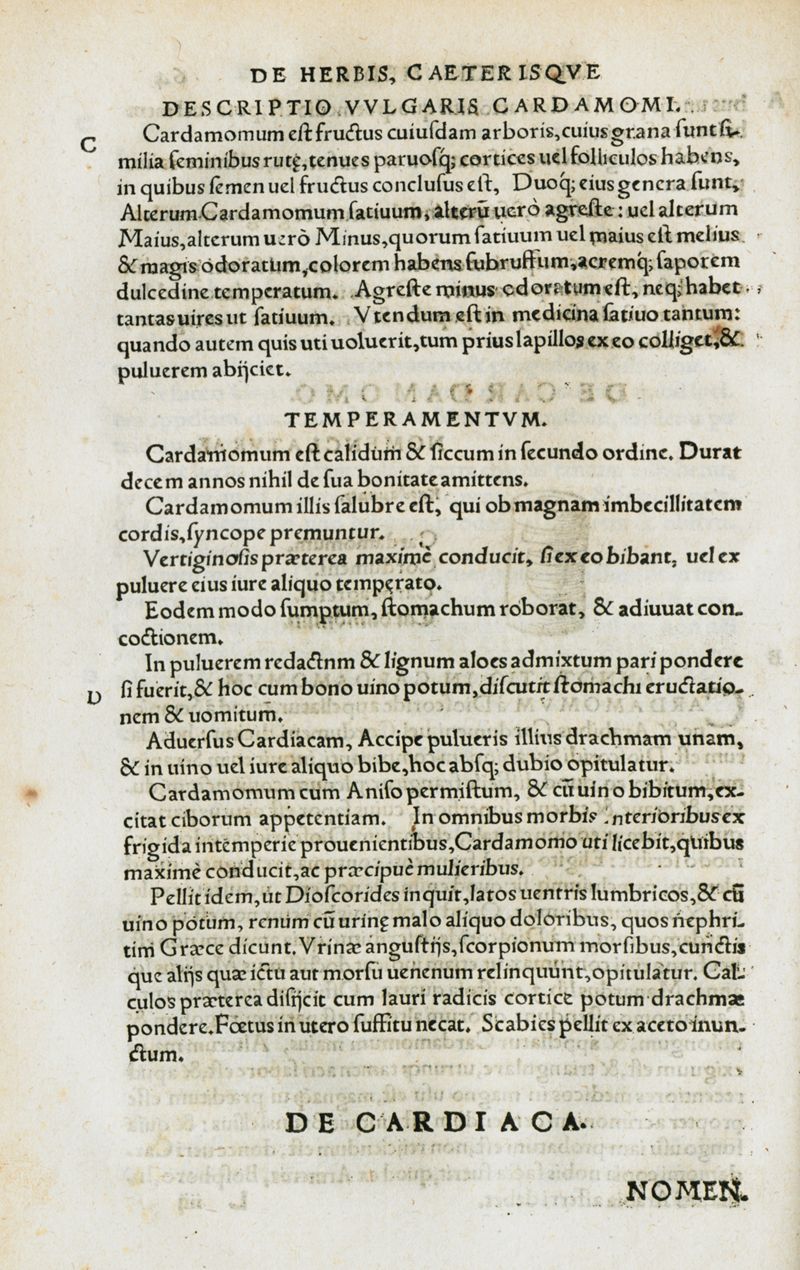 DE HERBIS, CAETERISQVE
DESCRIPTIO VVLGARIS CARDAMOMI.
C
Cardamomum eſt fructus cuiuſdam arboris, cuius grana ſunt ſi-
milia ſeminibus rutę, tenues paruoſq; cortices uel folliculos habens,
in quibus ſemen uel fructus concluſus eſt, Duoq; eius genera ſunt,
Alterum Cardamomum ſatiuum, alterũ uerò agreſte: uel alterum
Maius, alterum uerò Minus, quorum ſatiuum uel maius eſt melius
& magis odoratum, colorem habens ſubruffum, acremq; ſaporem
dulcedine temperatum. Agreſte minus odoratum eſt, neq; habet
tantas uires ut ſatiuum. Vtendum eſt in medicina ſatiuo tantum:
quando autem quis uti uoluerit, tum prius lapillos ex eo colliget, &
puluerem abijciet.
TEMPERAMENTVM.
Cardamomum eſt calidum & ſiccum in ſecundo ordine. Durat
decem annos nihil de ſua bonitate amittens.
Cardamomum illis ſalubre eſt, qui ob magnam imbecillitatem
cordis, ſyncope premuntur.
Vertiginoſis præterea maximè conducit, ſi ex eo bibant, uel ex
puluere eius iure aliquo temperato.
Eodem modo ſumptum, ſtomachum roborat, & adiuuat con-
coctionem.
In puluerem redactnm & lignum aloes admixtum pari pondere
D
ſi fuerit, & hoc cum bono uino potum, diſcutit ſtomachi eructatio-
nem & uomitum.
Aduerſus Cardiacam, Accipe pulueris illius drachmam unam,
& in uino uel iure aliquo bibe, hoc abſq; dubio opitulatur.
Cardamomum cum Aniſo permiſtum, & cũ uino bibitum, ex-
citat ciborum appetentiam. In omnibus morbis interioribus ex
frigida intemperie prouenientibus, Cardamomo uti licebit, quibus
maximè conducit, ac præcipuè mulieribus.
Pellit idem, ut Dioſcorides inquit, latos uentris lumbricos, & cũ
uino potum, renum cũ urinę malo aliquo doloribus, quos nephri-
tim Græce dicunt. Vrinæ anguſtijs, ſcorpionum morſibus, cunctis
que alijs quæ ictu aut morſu uenenum relinquunt, opitulatur. Cal-
culos præterea diſijcit cum lauri radicis cortice potum drachmæ
pondere. Fœtus in utero ſuffitu necat. Scabies pellit ex aceto inun-
ctum.
DE CARDIACA.
NOMEN.